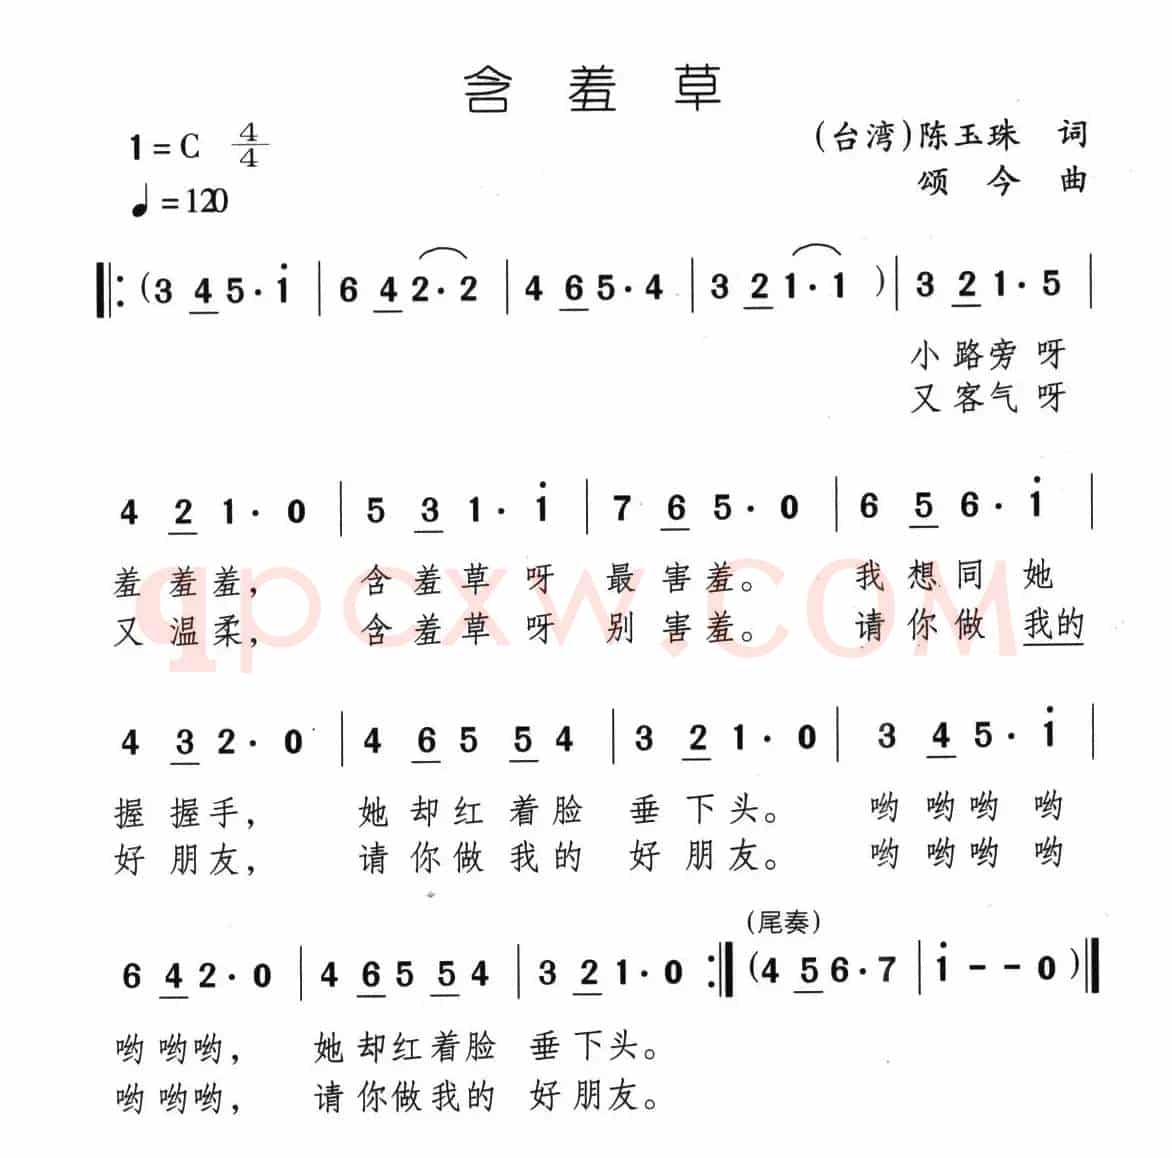 含羞草
1=C 4/4
（台湾）陈玉珠 词
♩=120
颂今 曲
‖: (3 4 5· i | 6 4 2· 2 | 4 6 5· 4 | 3 2 1· 1 ) | 3 2 1· 5 |
小路旁呀
又客气呀
4 2 1· 0 | 5 3 1· i | 7 6 5· 0 | 6 5 6· i |
羞羞羞， 含羞草呀 最害羞。 我想同她
又温柔， 含羞草呀 别害羞。 请你做我的
qpcxw.com
4 3 2· 0 | 4 6 5 5 4 | 3 2 1· 0 | 3 4 5· i |
握握手， 她却红着脸 垂下头。 哟哟哟哟
好朋友， 请你做我的 好朋友。 哟哟哟哟
（尾奏）
6 4 2· 0 | 4 6 5 5 4 | 3 2 1· 0 :‖ (4 5 6· 7 | i - - 0 )‖
哟哟哟， 她却红着脸 垂下头。
哟哟哟， 请你做我的 好朋友。